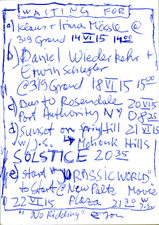 WAITING FOR
a) Klaus + Irina Mössle @
319 Grand 14 VI 15 14 00
b) Daniel Wiederkehr +
Erwin Schlegler
@ 319 Grand 18 VI 15 15 00
c) Bus to Rosendale 20 VI 15
Port Authority NY 08 25
d) Sunset on Spring Hill 21 VI 15
w/J.S. Mohonk Hills
SOLSTICE 20 35
e) Start "JURASSIC WORLD"
to start @ New Paltz Movie
22 VII 15 Plaza 21
"No Kidding" @ you